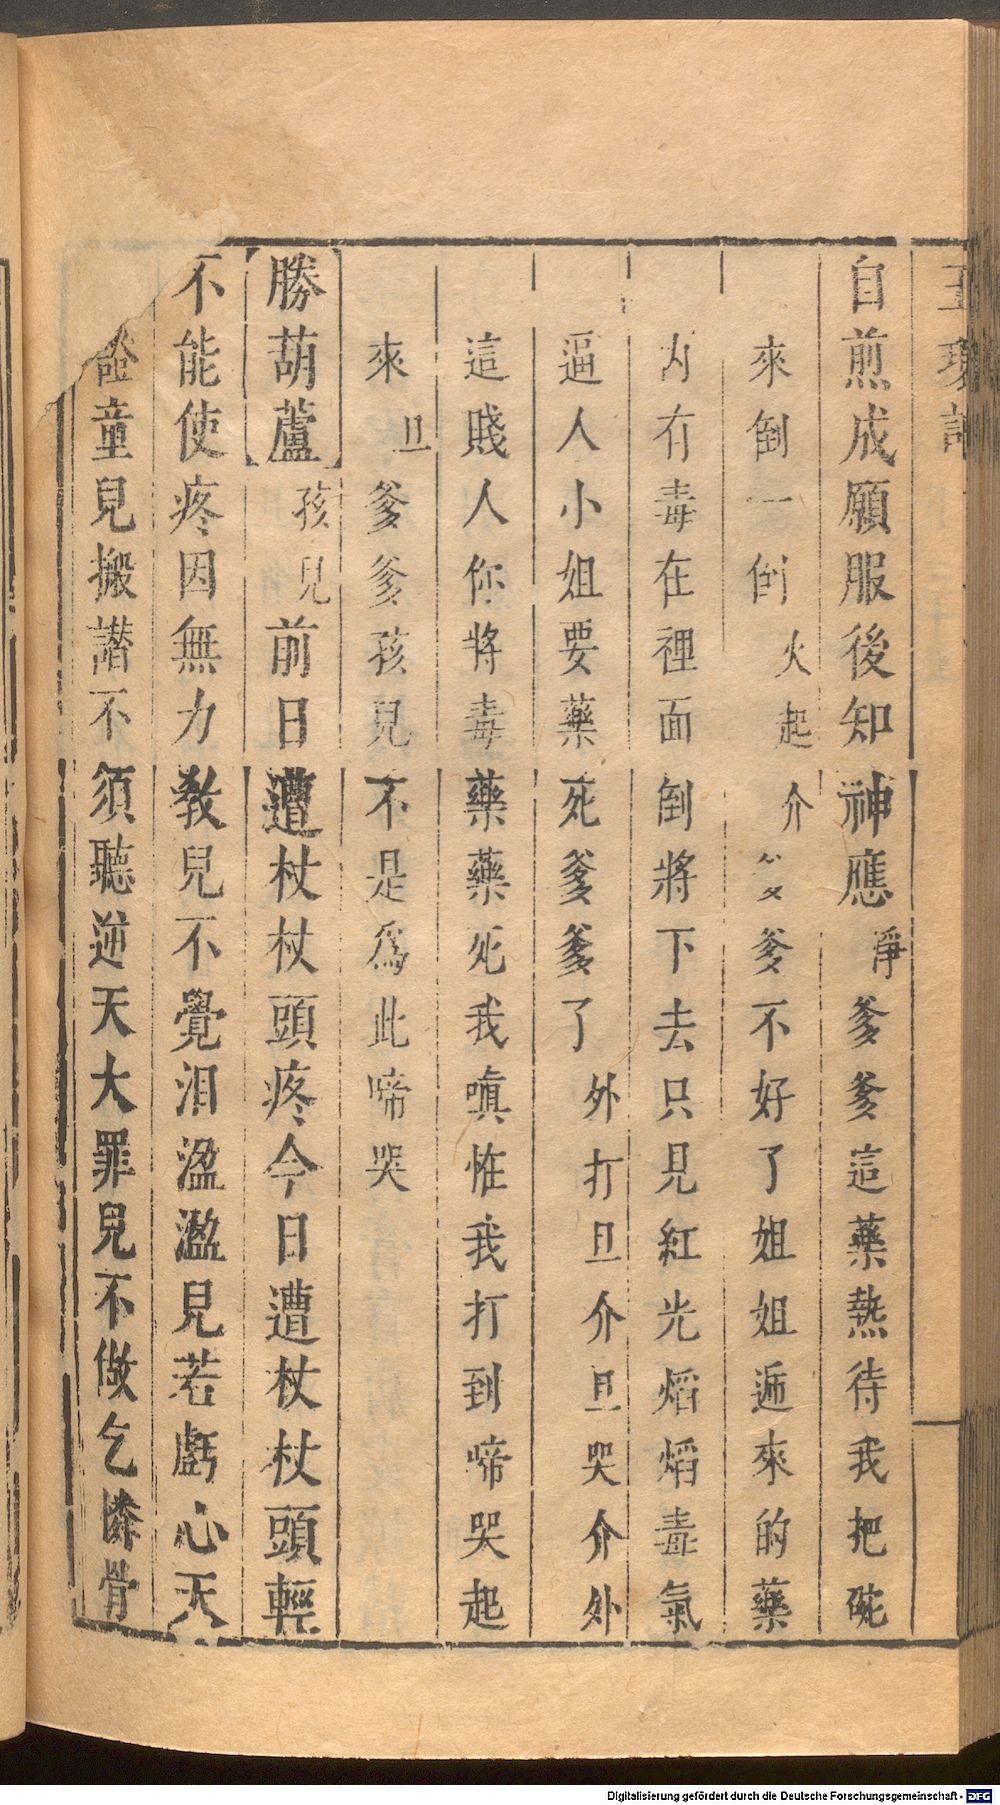 自煎成願服後知神應淨爹爹這藥熱待我把碗
來倒一倒火起介爹爹不好了姐姐逓來的藥
内有毒在裡面倒將下去只見紅光熖熖毒氣
逼人小姐要藥死爹爹了外打旦介旦哭介外
這賤人你將毒藥藥死我嗔恠我打到啼哭起
來旦爹爹孩兒不是爲此啼哭
勝葫蘆孩兒前日遭杖杖頭疼今日遭杖杖頭輕
不能使疼因無力教兒不覺泪溋溋兒若虧心天
證童兒搬譖不須聽逆天大罪兒不做乞憐骨
Digitalisierung gefördert durch die Deutsche Forschungsgemeinschaft - DFG